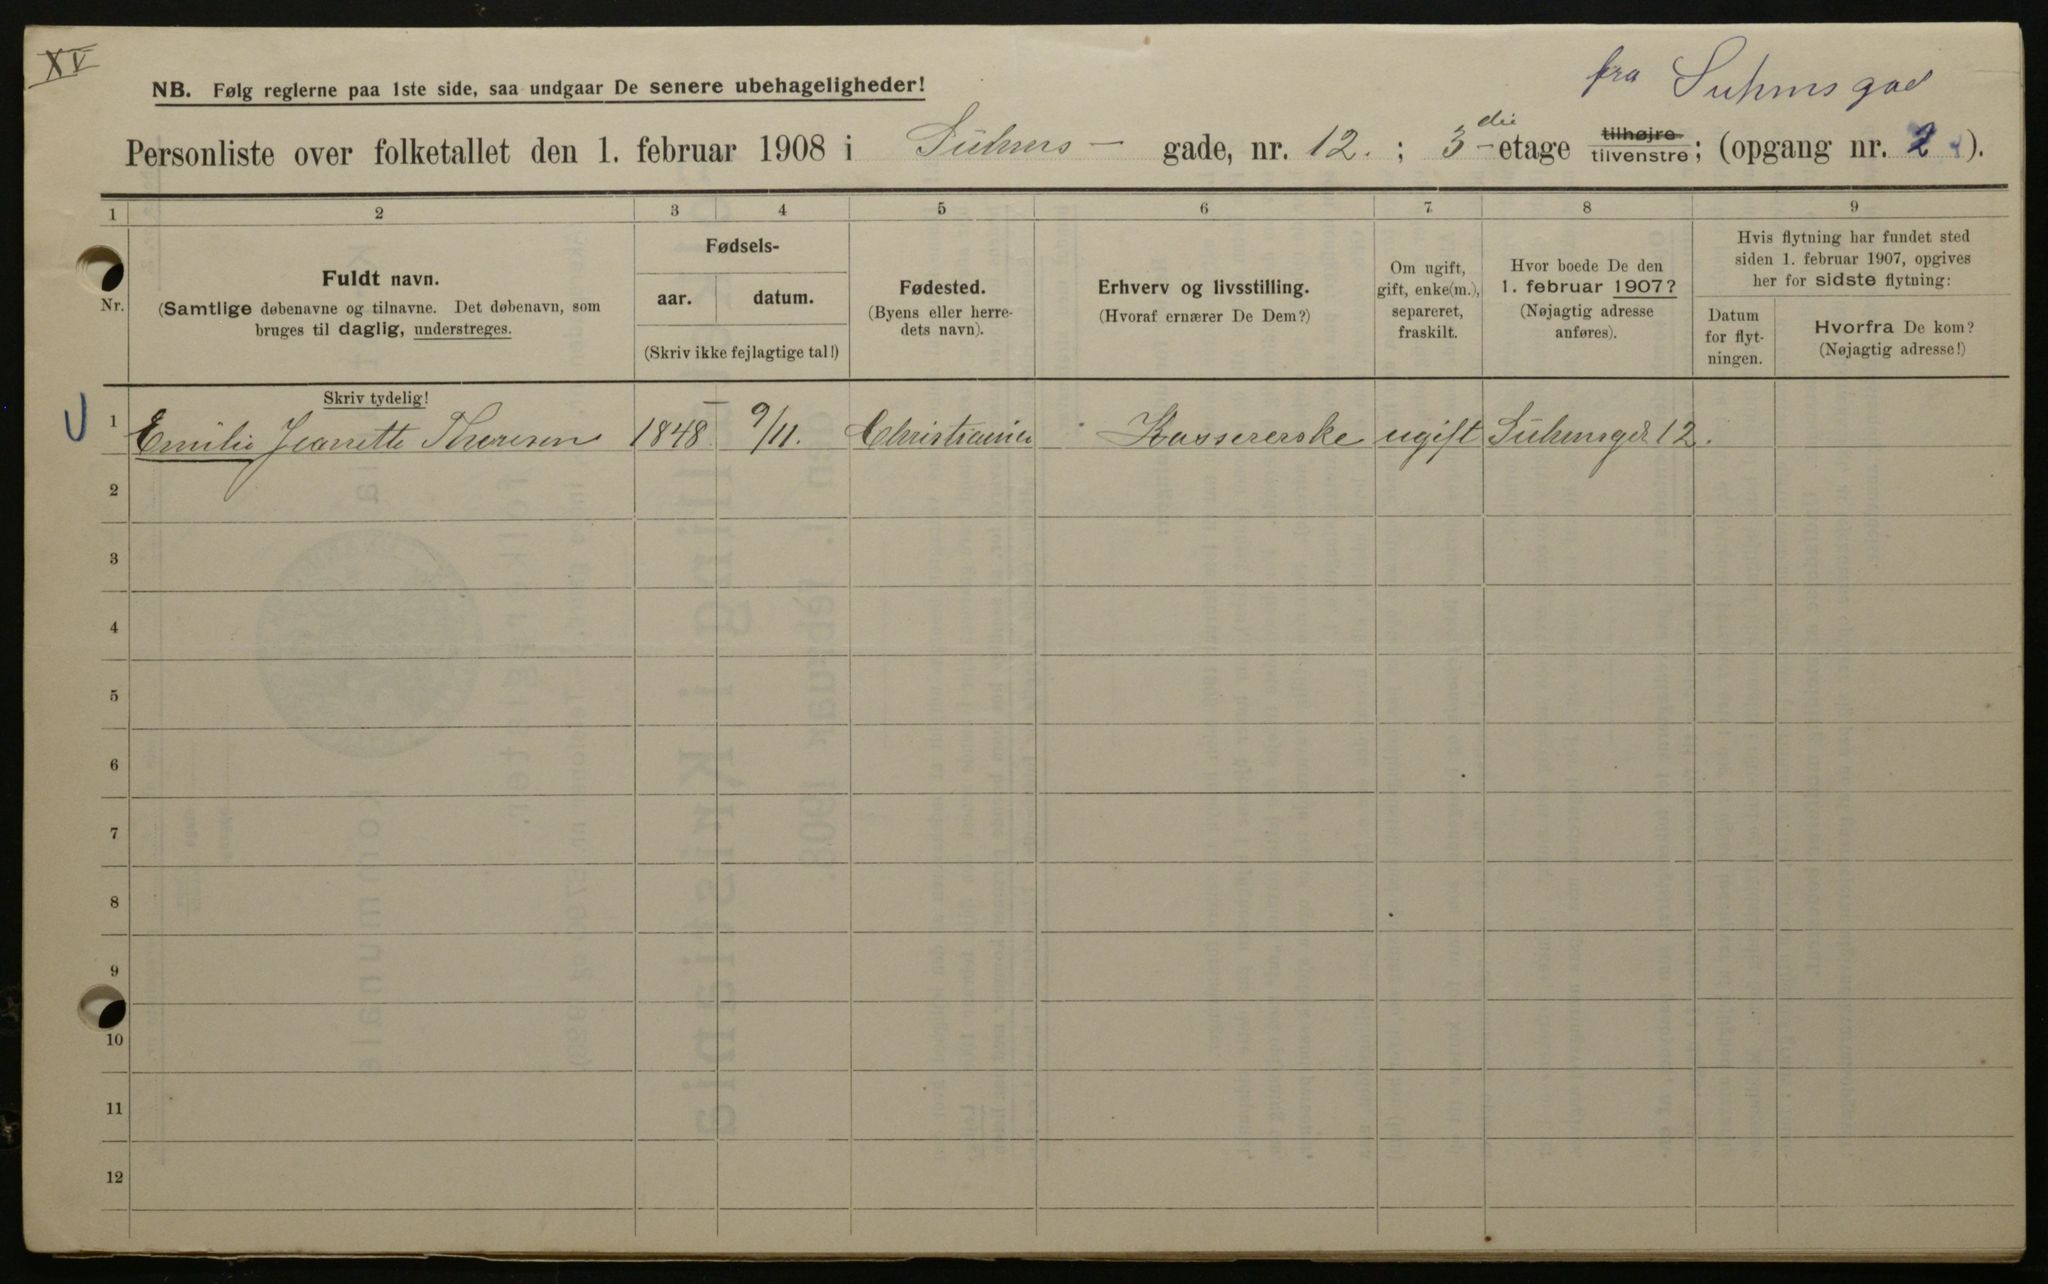 XV
fra Suhmsgad
NB. Følg reglerne paa 1ste side, saa undgaar De senere ubehageligheder!
Personliste over folketallet den 1. februar 1908 i Suhms- gade, nr. 12. ; 3-die etage tilhøjre tilvenstre; (opgang nr. 2).
1 2 3 4 5 6 7 8 9
Nr.
Fuldt navn.
(Samtlige døbenavne og tilnavne. Det døbenavn, som
bruges til daglig, understreges.
Fødsels-
aar. datum.
(Skriv ikke fejlagtige tal!)
Fødested.
(Byens eller herre-
dets navn).
Erhverv og livsstilling.
(Hvoraf ernærer De Dem?)
Om ugift,
gift, enke(m.),
separeret,
fraskilt.
Hvor boede De den
1. februar 1907?
(Nøjagtig adresse
anføres).
Hvis flytning har fundet sted
siden 1. februar 1907, opgives
her for sidste flytning:
Datum
for flyt-
ningen.
Hvorfra De kom?
(Nøjagtig adresse!)
Skriv tydelig!
1 Emilie Jeanette Thoresen 1848 9/11. Christiania Kassererske ugift Suhmsgd. 12.
2
3
4
5
6
7
8
9
10
11
12